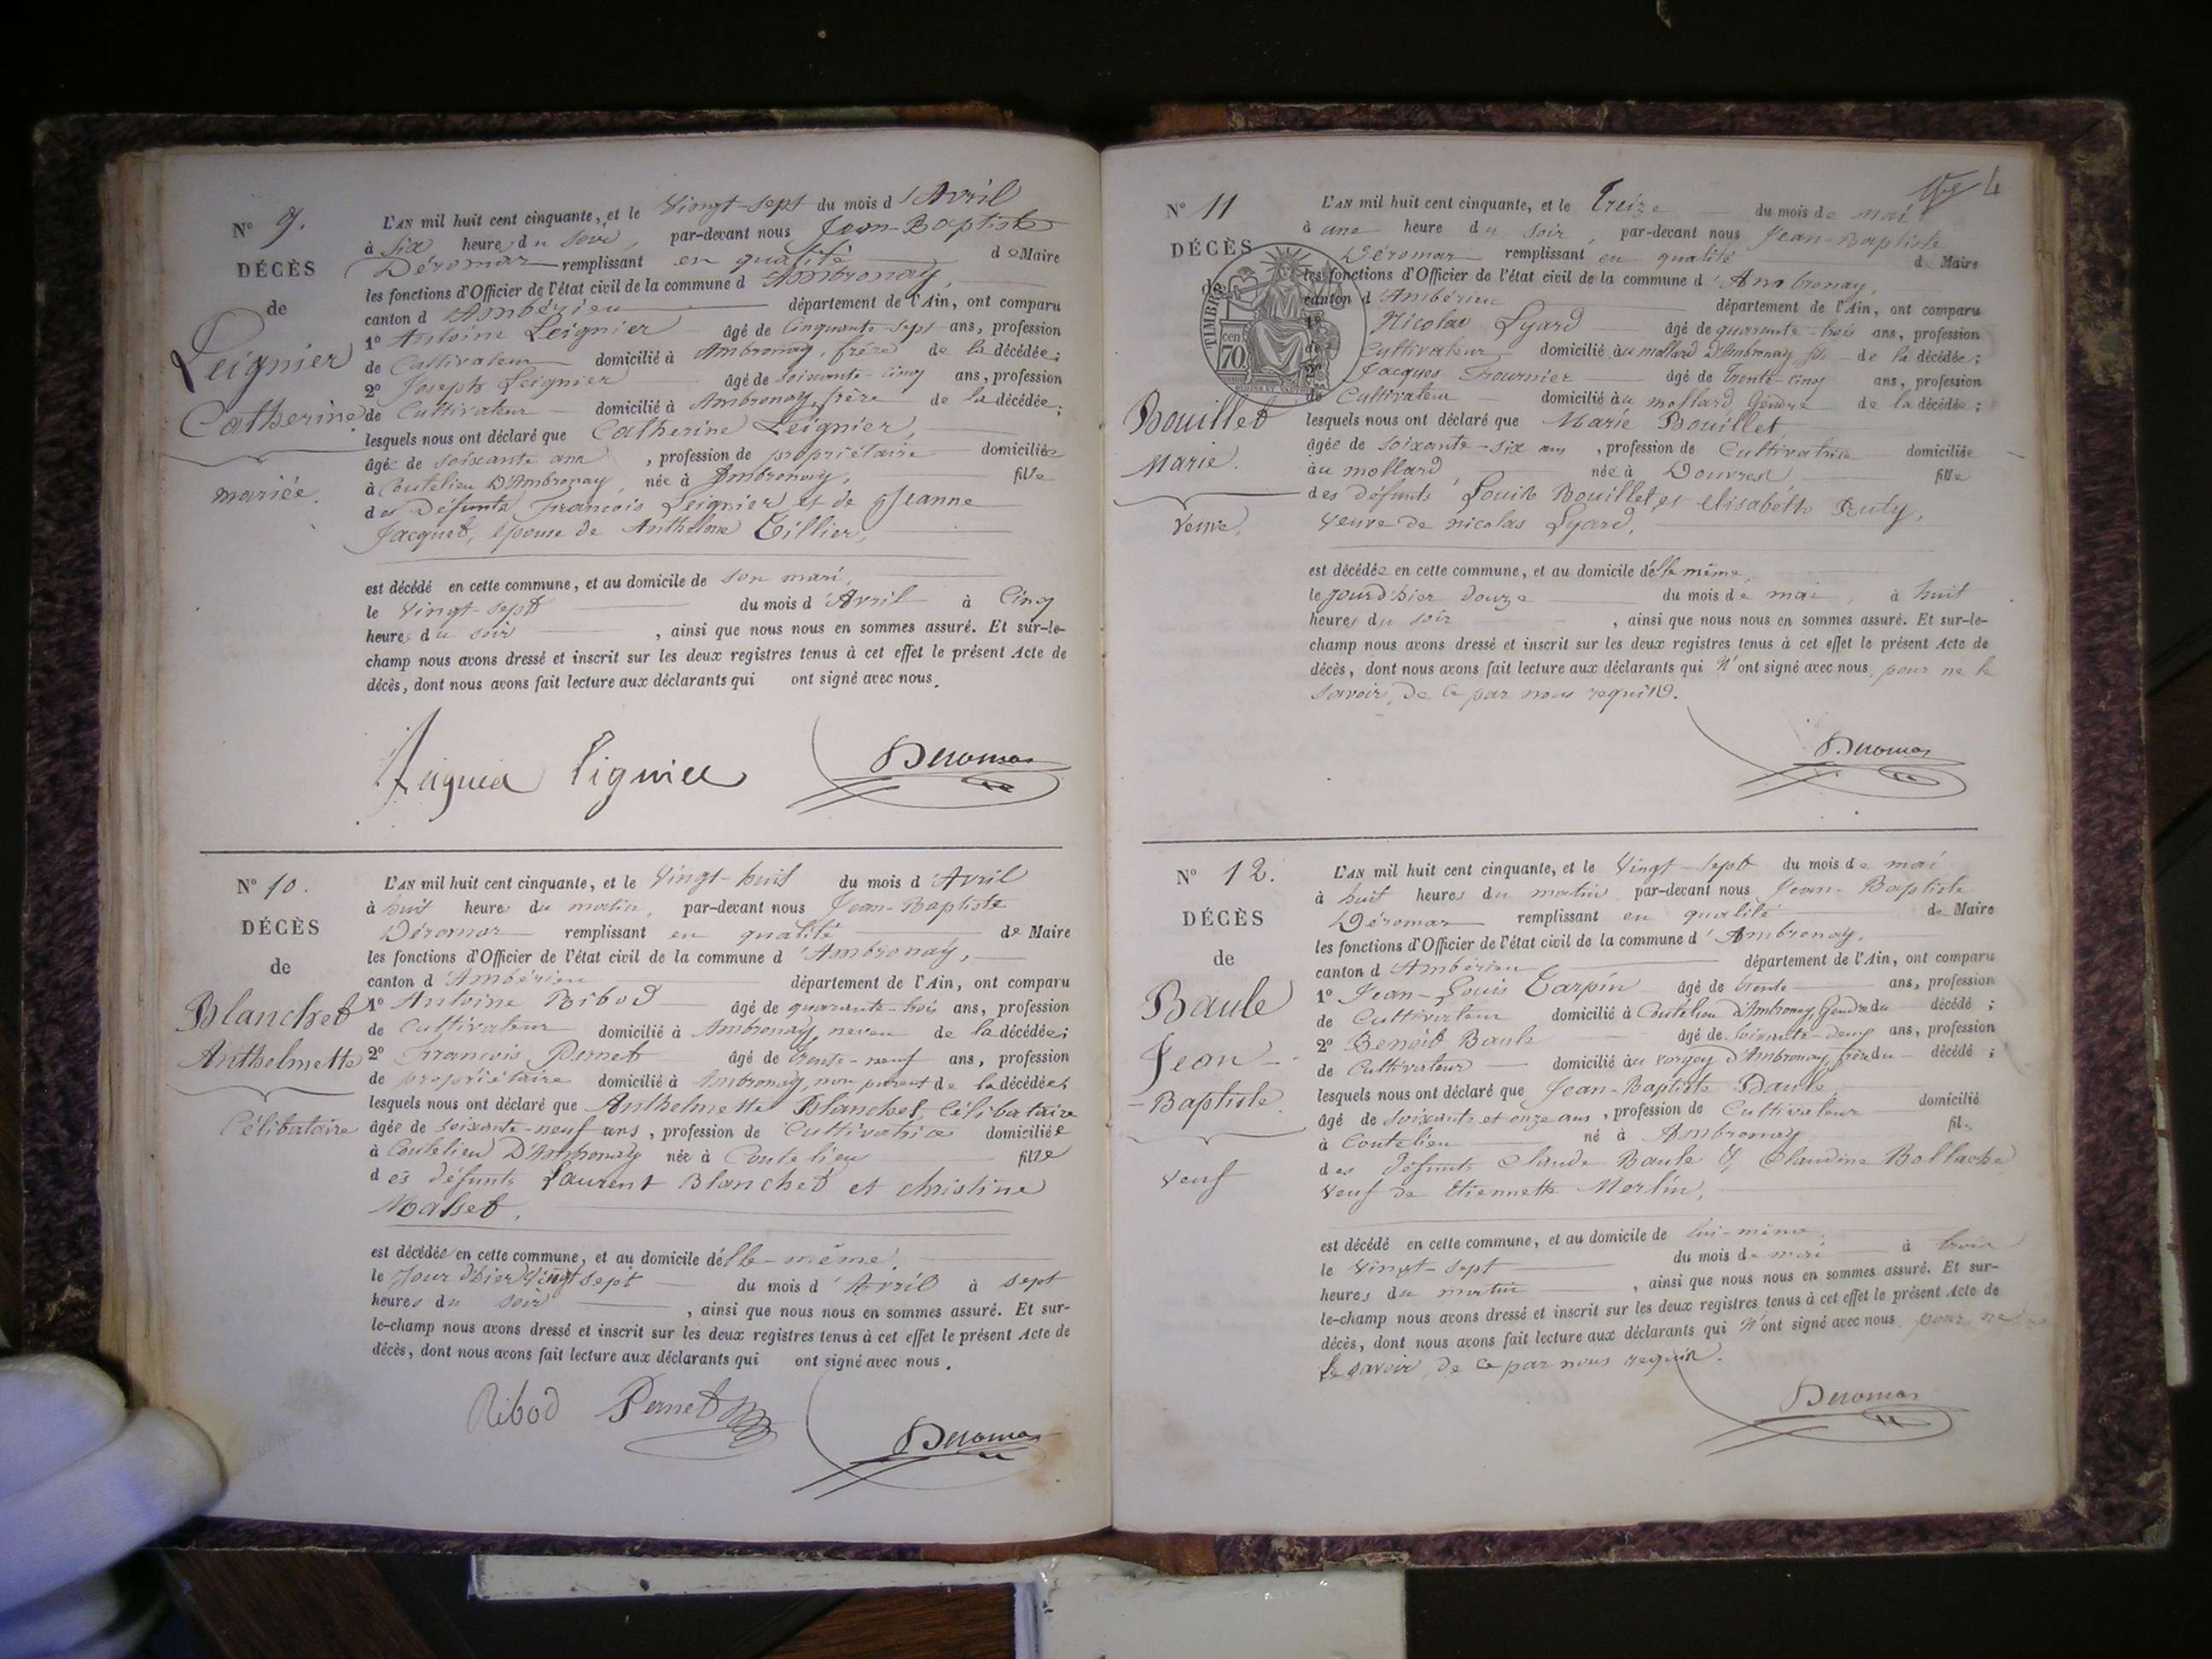 N° 9.
DÉCÈS
de
Leignier
Catherine
mariée.
L'AN mil huit cent cinquante, et le Vingt-sept du mois d'Avril
à Six heures du soir, par-devant nous Jean-Baptiste
Déromas remplissant en qualité de Maire
les fonctions d'Officier de l'état civil de la commune d'Ambronay,
canton d'Ambérieu département de l'Ain, ont comparu
1° Antoine Leignier âgé de Cinquante-sept ans, profession
de Cultivateur domicilié à Ambronay, frère de la décédée;
2° Joseph Leignier âgé de soixante-cinq ans, profession
de Cultivateur domicilié à Ambronay, frère de la décédée;
lesquels nous ont déclaré que Catherine Leignier,
âgée de soixante ans, profession de propriétaire domiciliée
à Coutelieu D'Ambronay, née à Ambronay, fille
des Défunts François Leignier et de Jeanne
Jacquet, épouse de Anthelme Tillier,
est décédé en cette commune, et au domicile de son mari,
le Vingt-sept du mois d'Avril à Cinq
heures du soir, ainsi que nous nous en sommes assuré. Et sur-le-
champ nous avons dressé et inscrit sur les deux registres tenus à cet effet le présent Acte de
décès, dont nous avons fait lecture aux déclarants qui ont signé avec nous.
Lignier Deromas
N° 10.
DÉCÈS
de
Blanchet
Anthelmette
Célibataire
L'AN mil huit cent cinquante, et le Vingt-huit du mois d'Avril
à huit heures du matin, par-devant nous Jean-Baptiste
Déromas remplissant en qualité de Maire
les fonctions d'Officier de l'état civil de la commune d'Ambronay,
canton d'Ambérieu département de l'Ain, ont comparu
1° Antoine Ribod âgé de quarante-trois ans, profession
de Cultivateur domicilié à Ambronay, neveu de la décédée;
2° François Pernet âgé de trente-neuf ans, profession
de propriétaire domicilié à Ambronay, non parent de la décédée;
lesquels nous ont déclaré que Anthelmette Blanchet, Célibataire
âgée de soixante-neuf ans, profession de Cultivatrice domiciliée
à Coutelieu D'Ambronay née à Coutelieu fille
des défunts Laurent Blanchet et Christine
est décédée en cette commune, et au domicile d'elle-même,
le Jour d'hier Vingt sept du mois d'Avril à sept
heures du soir, ainsi que nous nous en sommes assuré. Et sur-
le-champ nous avons dressé et inscrit sur les deux registres tenus à cet effet le présent Acte de
décès, dont nous avons fait lecture aux déclarants qui ont signé avec nous.
Ribod Pernet
Deromas
4
N° 11
DÉCÈS
de
TIMBRE
70 cen
Bouillet
Marie.
Veuve.
L'AN mil huit cent cinquante, et le Treize du mois de mai
à une heure du soir, par-devant nous Jean-Baptiste
Déromas remplissant en qualité de Maire
les fonctions d'Officier de l'état civil de la commune d'Ambronay,
canton d'Ambérieu département de l'Ain, ont comparu
1° Nicolas Lyard âgé de quarante-trois ans, profession
de Cultivateur domicilié au mollard D'Ambronay fils de la décédée;
2° Jacques Fournier âgé de Trente-cinq ans, profession
de Cultivateur domicilié au mollard Gendre de la décédée;
lesquels nous ont déclaré que Marie Bouillet
âgée de soixante-six ans, profession de Cultivatrice domiciliée
au mollard née à Douvres fille
des défunts Louis Bouillet et Elisabeth Ruty,
Veuve de nicolas Lyard,
est décédée en cette commune, et au domicile d'elle même,
le jourd'hier douze du mois de mai, à huit
heures du soir, ainsi que nous nous en sommes assuré. Et sur-le-
champ nous avons dressé et inscrit sur les deux registres tenus à cet effet le présent Acte de
décès, dont nous avons fait lecture aux déclarants qui n'ont signé avec nous, pour ne le
savoir, de ce par nous requis.
Deromas
N° 12.
DÉCÈS
de
Baule
Jean-
-Baptiste.
Veuf
L'AN mil huit cent cinquante, et le Vingt-sept du mois de mai
à huit heures du matin par-devant nous Jean-Baptiste
Déromas remplissant en qualité de Maire
les fonctions d'Officier de l'état civil de la commune d'Ambronay,
canton d'Ambérieu département de l'Ain, ont comparu
1° Jean-Louis Tarpin âgé de trente ans, profession
de Cultivateur domicilié à Coutelieu D'Ambronay, Gendre du décédé;
2° Benoit Baule âgé de soixante-deux ans, profession
de Cultivateur domicilié au vorgey d'Ambronay, frère du décédé;
lesquels nous ont déclaré que Jean-Baptiste Baule,
âgé de soixante et onze ans, profession de Cultivateur domicilié
à Coutelieu né à Ambronay fils
des Défunts Claude Baule & Claudine Bollache
Veuf de Etiennette Merlin,
est décédé en cette commune, et au domicile de lui-même
le Vingt-sept du mois de mai à trois
heures du matin, ainsi que nous nous en sommes assuré. Et sur-
le-champ nous avons dressé et inscrit sur les deux registres tenus à cet effet le présent Acte de
décès, dont nous avons fait lecture aux déclarants qui n'ont signé avec nous pour ne
le savoir, de ce par nous requis.
Deromas